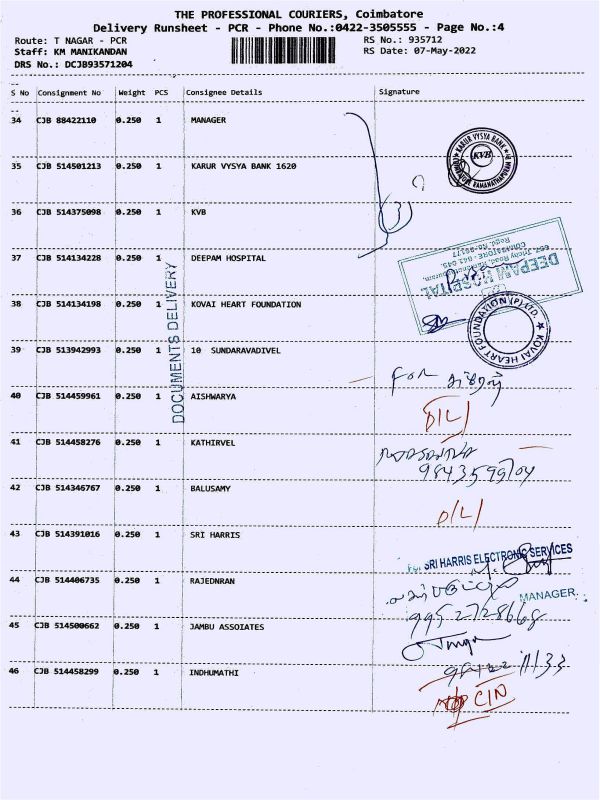 THE PROFESSIONAL COURIERS, Coimbatore
Delivery Runsheet - PCR - Phone No.:0422-3505555 - Page No.:4
Route: T NAGAR - PCR RS No.: 935712
Staff: KM MANIKANDAN RS Date: 07-May-2022
DRS No.: DCJB93571204
S No Consignment No Weight PCS Consignee Details Signature
34 CJB 88422110 0.250 1 MANAGER
KARUR VYSYA BANK
KVB
35 CJB 514501213 0.250 1 KARUR VYSYA BANK 1620
36 CJB 514375098 0.250 1 KVB
(3)
37 CJB 514134228 0.250 1 DEEPAM HOSPITAL
DEEPAM HOSPITAL
DOCUMENTS DELIVERY
38 CJB 514134198 0.250 1 KOVAI HEART FOUNDATION
KOVAI HEART FOUNDATION (P) LTD.
39 CJB 513942993 0.250 1 10 SUNDARAVADIVEL
For
40 CJB 514459961 0.250 1 AISHWARYA
D/L/
41 CJB 514458276 0.250 1 KATHIRVEL
42 CJB 514346767 0.250 1 BALUSAMY
D/L/
43 CJB 514391016 0.250 1 SRI HARRIS
For SRI HARRIS ELECTRONIC SERVICES
44 CJB 514406735 0.250 1 RAJEDNRAN
MANAGER
9952728668
45 CJB 514500662 0.250 1 JAMBU ASSOIATES
46 CJB 514458299 0.250 1 INDHUMATHI
C/N